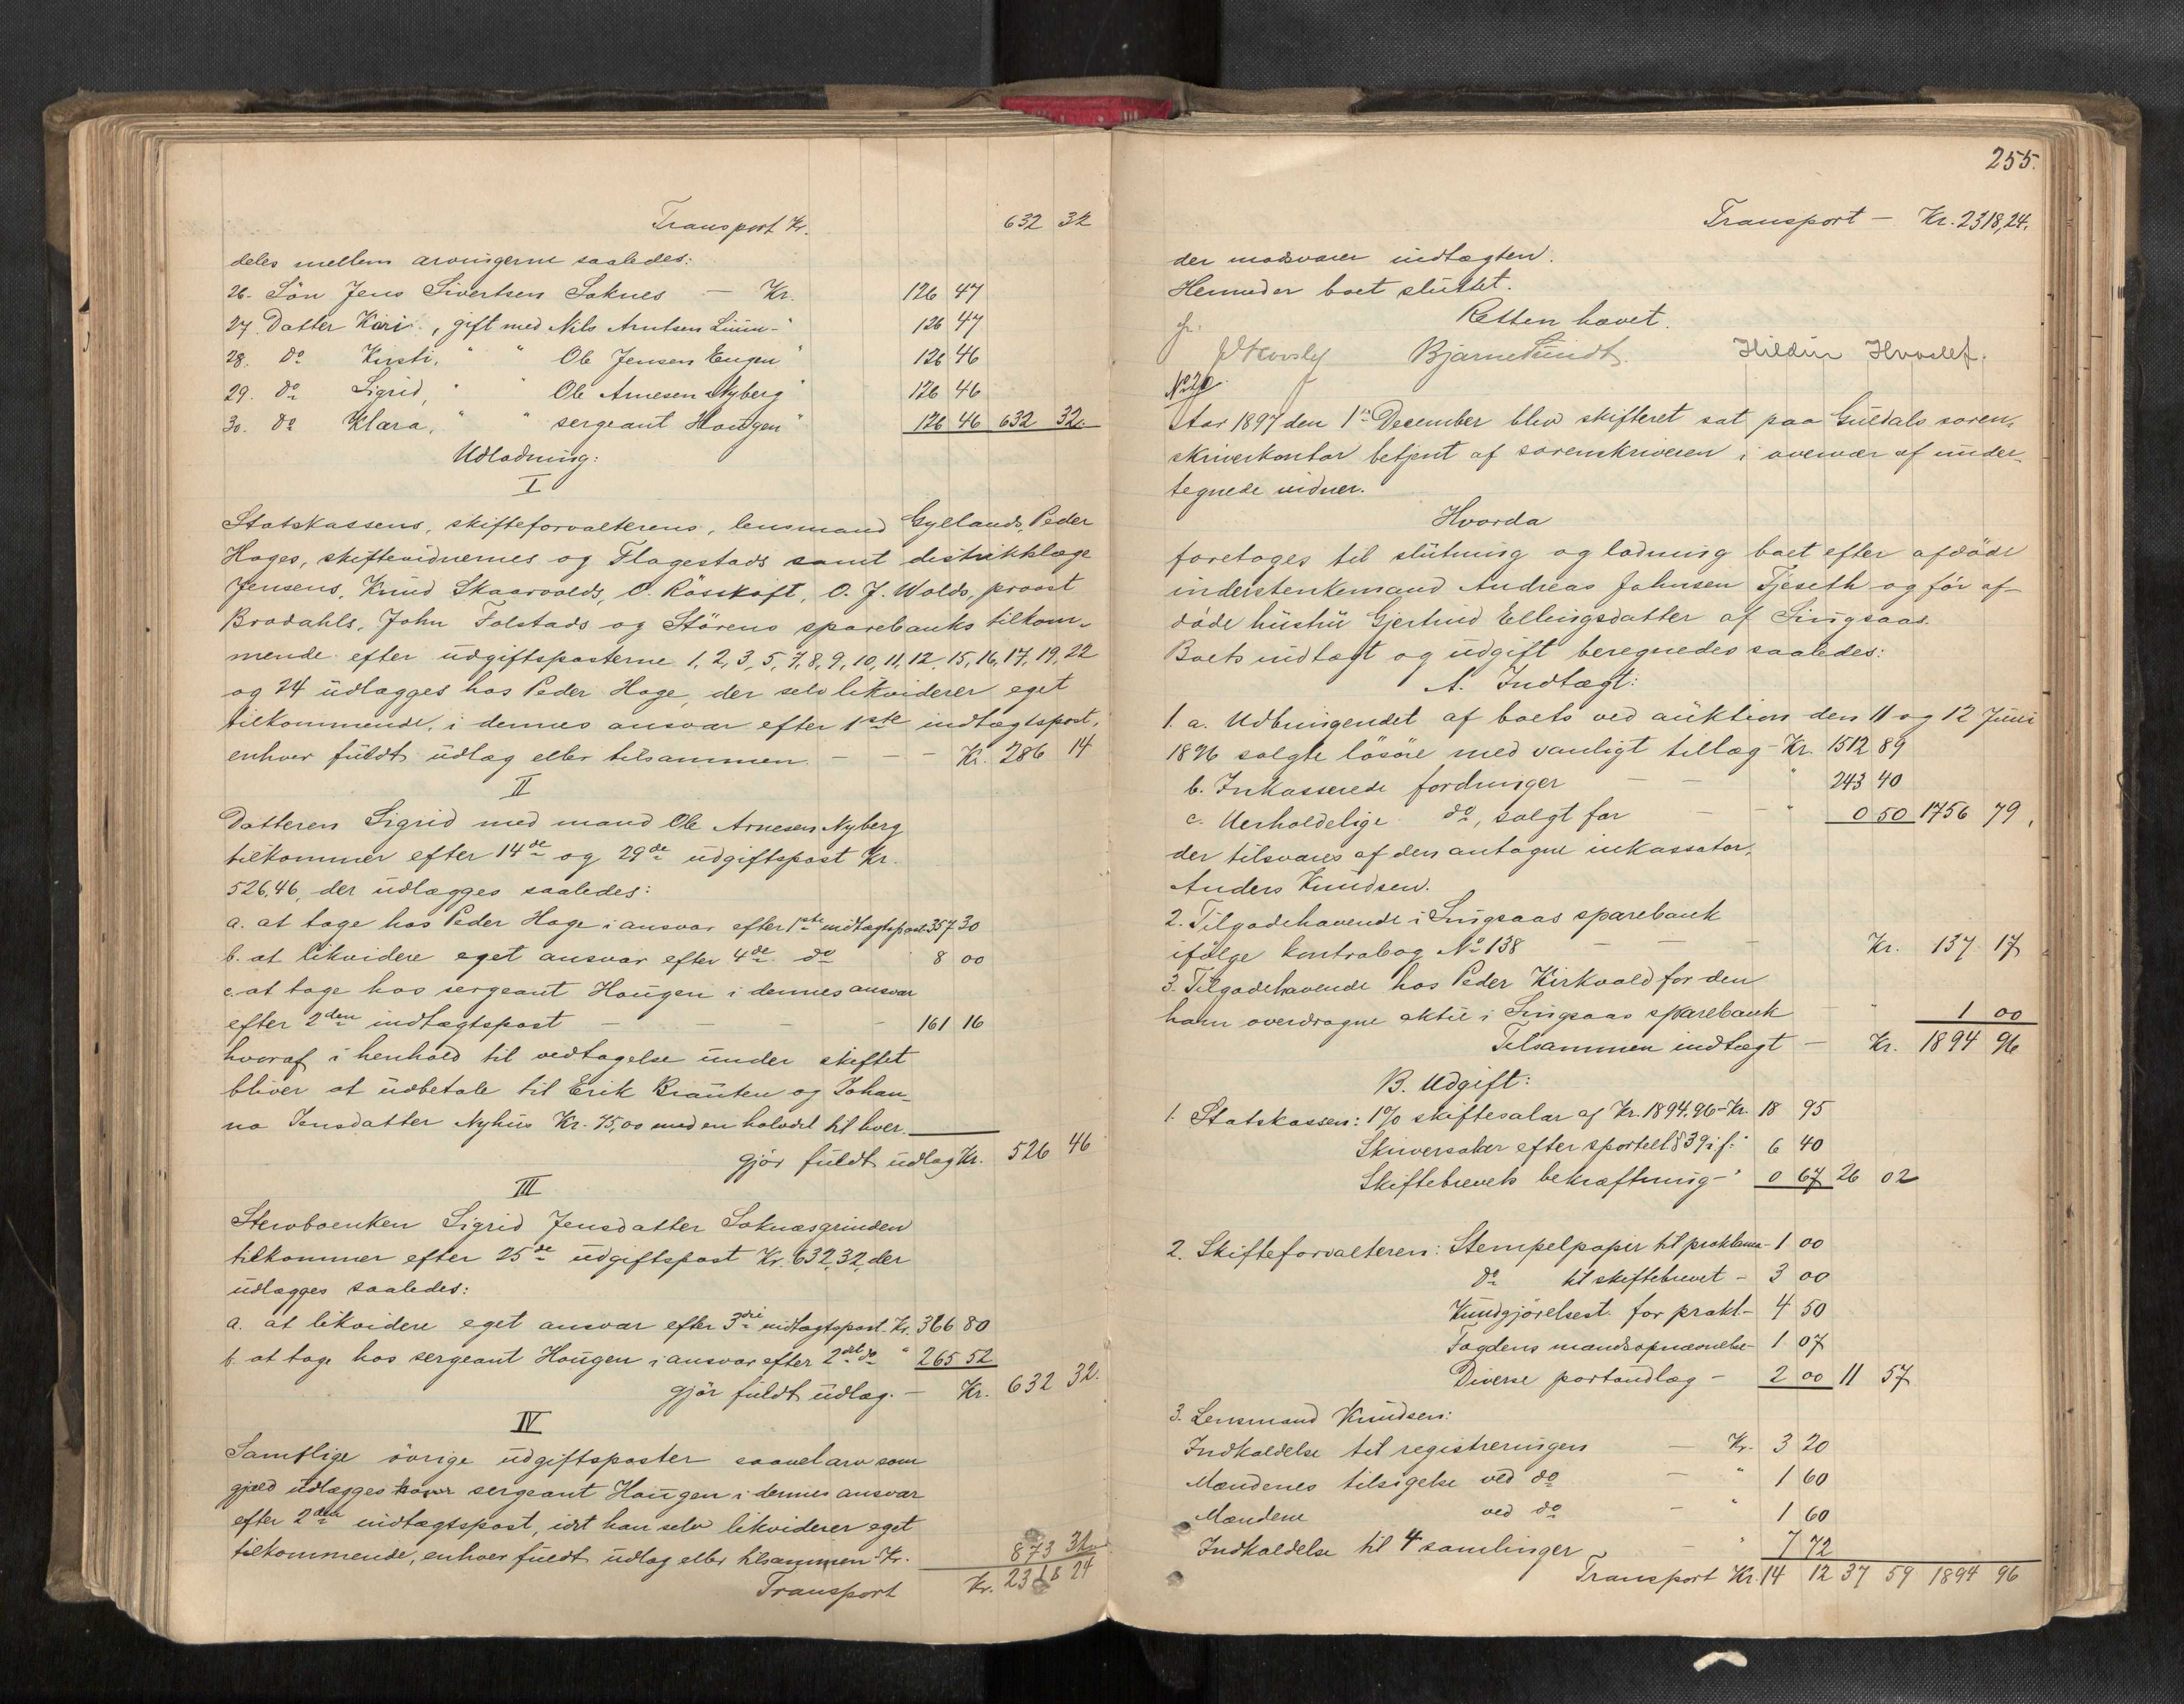 Transport Kr. 632 32
deles mellem arvingerne saaledes:
26. Sön Jens Sivertsen Soknes — Kr. 126 47
27. Datter Kari, gift med Nils Arntsen 126 47
28. do Kirsti, " " Ole Jensen Eugen " 126 46
29. do Sigrid, " " Ole Arnesen Nyberg " 126 46
30. do Klara, " " sergeant Hougen " 126 46 632 32.
Udlodning:
I
Statskassens, skifteforvalterens, lensmand Gyllands, Peder
Hages, skiftevidnernes og Flagestads samt distriktslæge
Jensens, Knud Skaarvolds, O. Rösskaft, O. J. Wolds, provst
Brodahls, John Folstads og Störens sparebanks tilkom-
mende efter udgiftsposterne 1, 2, 3, 5, 7, 8, 9, 10, 11, 12, 15, 16, 17, 19, 22
og 24 udlægges hos Peder Hage, der selv likviderer eget
tilkommende, i dennes ansvar efter 1ste indtægtspost,
enhver fuldt udlæg eller tilsammen — — — Kr. 286 14
II
Datteren Sigrid med mand Ole Arnesen Nyberg
tilkommer efter 14de og 29de udgiftspost Kr.
526,46, der udlægges saaledes:
a. at tage hos Peder Hage i ansvar efter 1ste indtægtspost 357 30
b. at likvidere eget ansvar efter 4de do 8 00
c. at tage hos sergeant Hougen i dennes ansvar
efter 2den indtægtspost — — — — 161 16
hvoraf i henhold til vedtagelse under skiftet
bliver at udbetale til Erik Brauten og Johan-
na Jensdatter Nyhus Kr. 75,00 med en halvdel til hver.
gjör fuldt udlæg Kr. 526 46
III
Stervboenken Sigrid Jensdatter Soknæsgrinden
tilkommer efter 25de udgiftspost Kr. 632,32, der
udlægges saaledes:
a. at likvidere eget ansvar efter 3die indtægtspost. Kr. 366 80
b. at tage hos sergeant Hougen i ansvar efter 2den do " 265 52
gjör fuldt udlæg. — Kr. 632 32.
IV
Samtlige övrige udgiftsposter saavel arv som
gjæld udlægges hos sergeant Hougen i dennes ansvar
efter 2den indtægtspost, idet han selv likviderer eget
tilkommende, enhver fuldt udlæg eller tilsammen Kr. 873 32
Transport Kr. 2318 24
255.
Transport — Kr. 2318,24.
der modsvarer indtægten.
Hermed er boet sluttet.
Retten hævet.
Bjarne Hildur Hvoslef.
No 20.
Aar 1897 den 1ste December blev skifteret sat paa Guldals soren-
skriverkontor betjent af sorenskriveren i overvær af under-
tegnede vidner.
Hvorda
foretoges til slutning og lodning boet efter afdöde
inderstenkemand Andreas Johnsen Tjeseth og för af-
döde hustru Gjertrud Ellingsdatter af Singsaas.
Boets indtægt og udgift beregnedes saaledes:
A. Indtægt:
1. a. Udbringendet af boets ved auktion den 11 og 12 Juni
1896 solgte lösöre med vanligt tillæg — Kr. 1512 89
b. Inkasserede fordringer — — " 243 40
c. Uerholdelige do, solgt for — — " 0 50 1756 79,
der tilsvares af den antagne inkassator,
Anders Knudsen.
2. Tilgodehavende i Singsaas sparebank
ifölge kontrabog No 138 — — — Kr. 137 17
3. Tilgodehavende hos Peder Kirkvold for den
ham overdragne aktie i Singsaas sparebank — " 1 00
Tilsammen indtægt — Kr. 1894 96
B. Udgift:
1. Statskassen: 1% skiftesalær af Kr. 1894.96 — Kr. 18 95
Skriversalær efter sportell. § 39 i f. " 6 40
Skiftebrevets bekræftning — " 0 67 26 02
2. Skifteforvalteren: Stempelpapir til proklama — 1 00
do til skiftebrevet — 3 00
Kundgjörelsest. for prokl. — 4 50
Fogdens mandsopnævnelse — 1 07
Diverse portoudlæg — 2 00 11 57
3. Lensmand Knudsen:
Indkaldelse til registreringen — Kr. 3 20
Mændenes tilsigelse ved do — " 1 60
Mændene ved do — " 1 60
Indkaldelse til 4 samlinger — " 7 72
Transport Kr. 14 12 37 59 1894 96